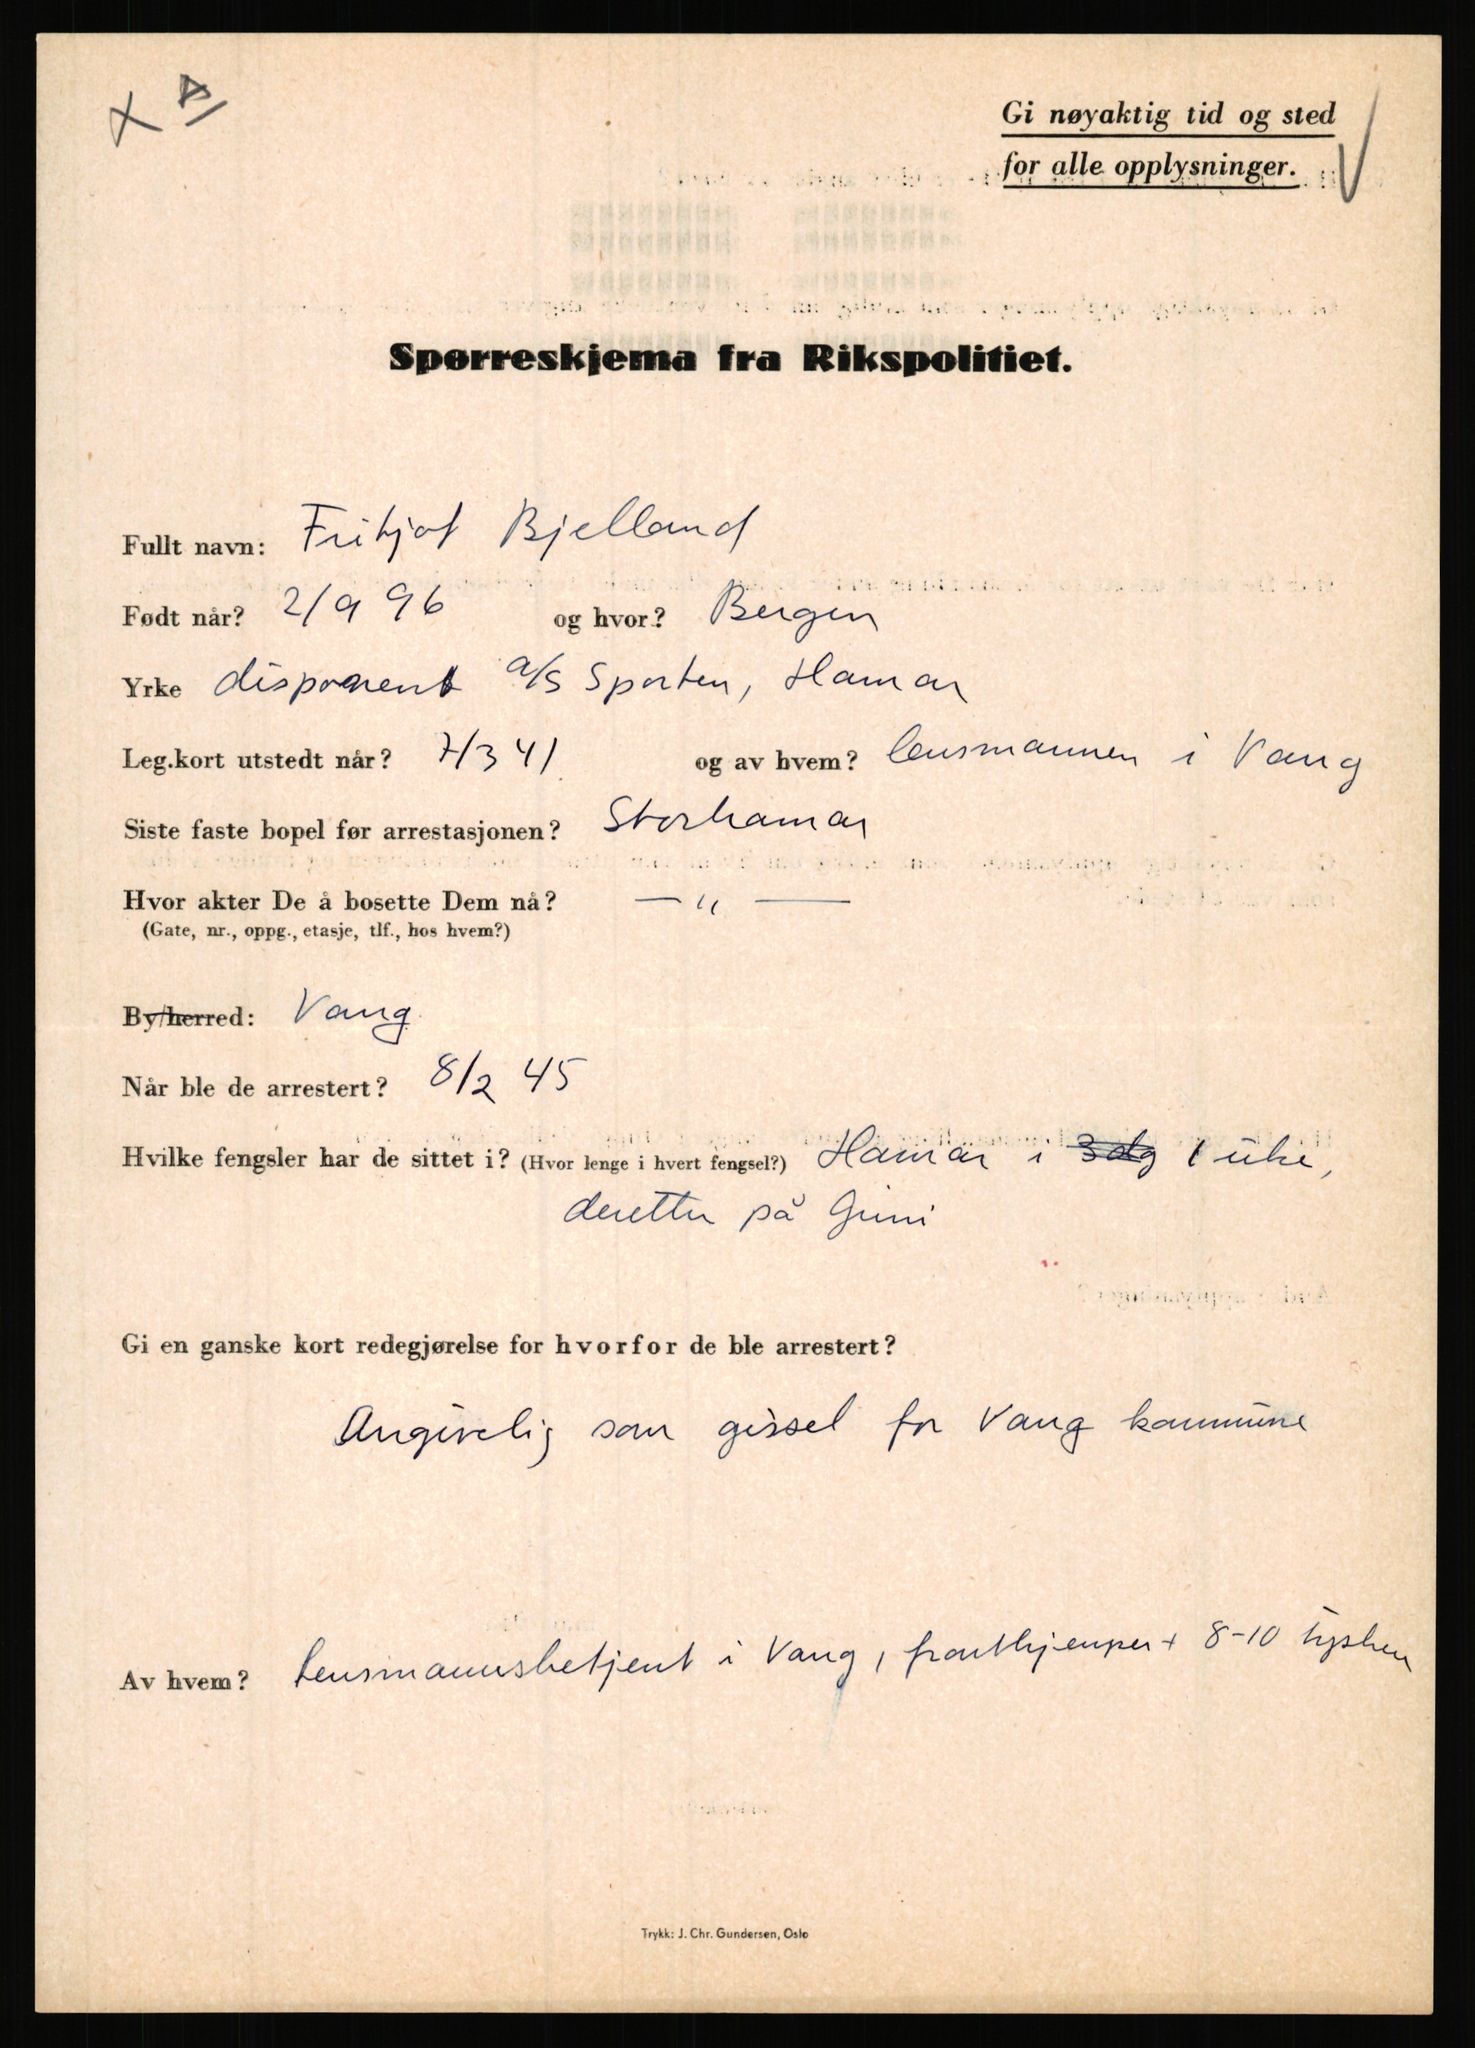 Gi nøyaktig tid og sted
for alle opplysninger.
Spørreskjema fra Rikspolitiet.
Fullt navn: Fritjof Bjelland
Født når? 2/9 96 og hvor? Bergen
Yrke disponent a/s Sporten, Hamar
Leg.kort utstedt når? 7/3 41 og av hvem? lensmannen i Vang
Siste faste bopel før arrestasjonen? Storhamar
Hvor akter De å bosette Dem nå? — " —
(Gate, nr., oppg., etasje, tlf., hos hvem?)
By/herred: Vang
Når ble de arrestert? 8/2 45
Hvilke fengsler har de sittet i? (Hvor lenge i hvert fengsel?) Hamar i 3 dg 1 uke,
deretter på Grini
Gi en ganske kort redegjørelse for hvorfor de ble arrestert?
Angivelig som gissel for Vang kommune
Av hvem? Lensmannsbetjent i Vang, frontkjemper + 8-10 tyskere
Trykk: J. Chr. Gundersen, Oslo